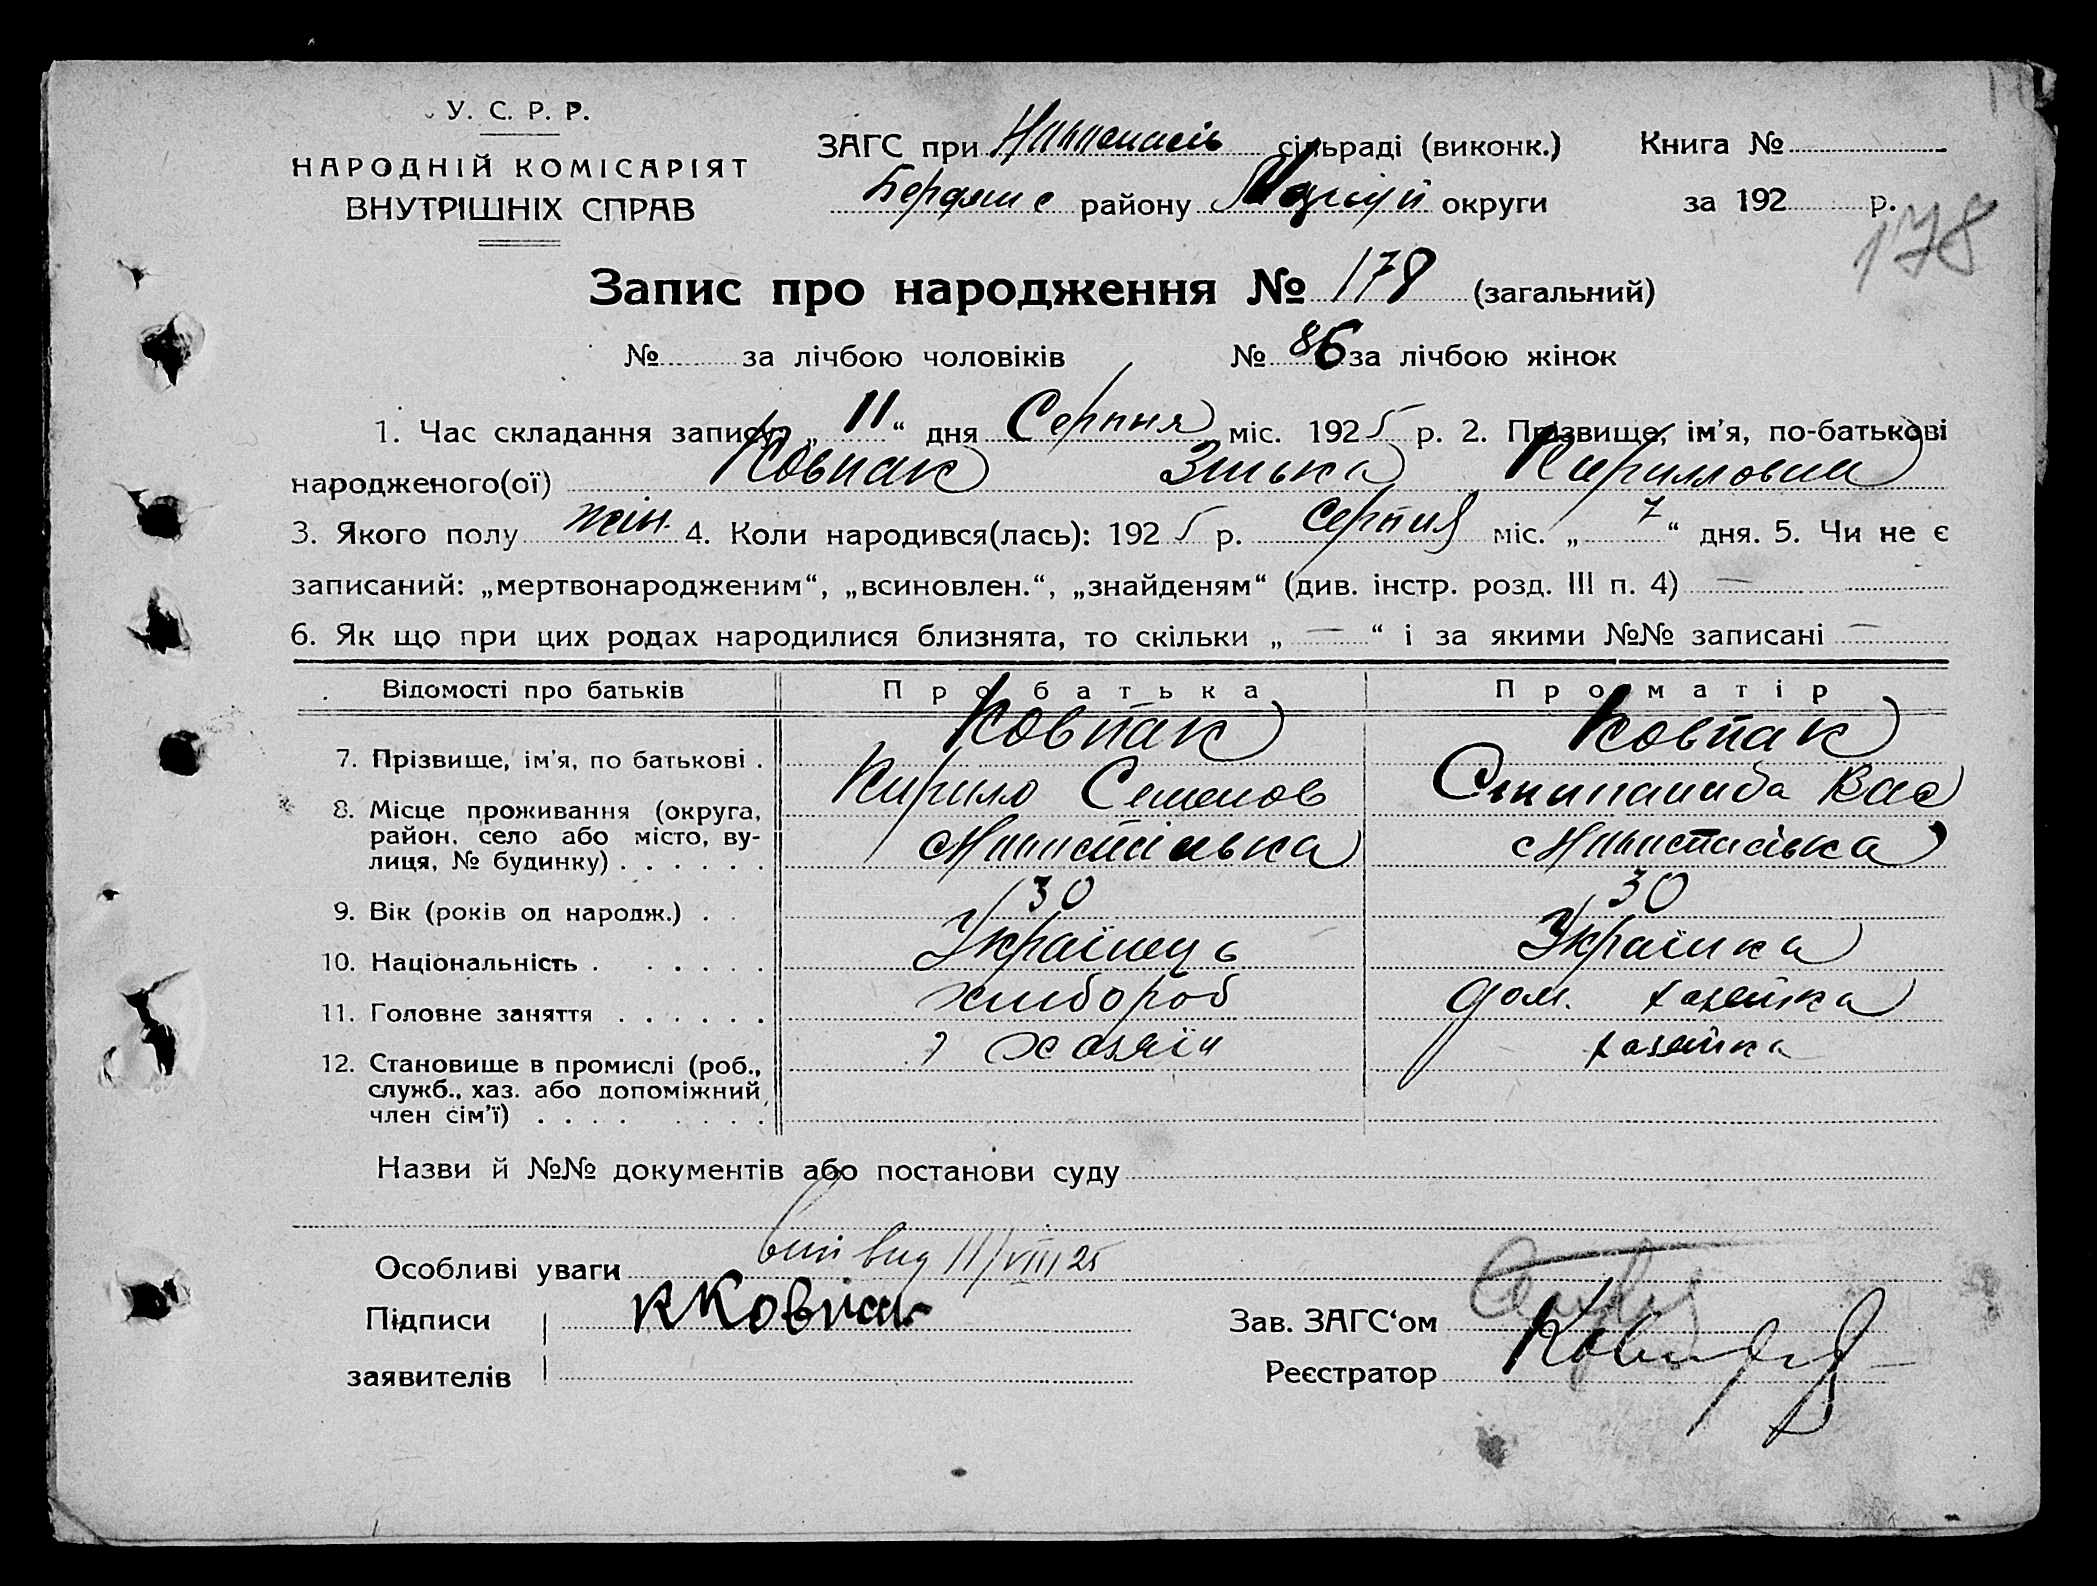 У. С. Р. Р.
НАРОДНІЙ КОМІСАРІЯТ
ВНУТРІШНІХ СПРАВ
ЗАГС при сільраді (виконк.) Книга №
Бердянс району округи за 192 р.
178
Запис про народження № 178 (загальний)
№ за лічбою чоловіків № 86 за лічбою жінок
1. Час складання запису „ 11 “ дня Серпня міс. 1925 р. 2. Прізвище, ім'я, по-батькові
народженого(ої) Ковпак Зінька Кирилловна
3. Якого полу жін. 4. Коли народився(лась): 1925 р. Серпня міс. „ 7 “ дня. 5. Чи не є
записаний: „мертвонародженим“, „всиновлен.“, „знайденям“ (див. інстр. розд. III п. 4) —
6. Як що при цих родах народилися близнята, то скільки „ — “ і за якими №№ записані —
Відомості про батьків Про батька Про матір
7. Прізвище, ім'я, по батькові . Ковпак Ковпак
Кирило Семенов Вас
8. Місце проживання (округа, район, село або місто, вулиця, № будинку) . . . . . .
9. Вік (років од народж.) . . 30 30
10. Національність . . . . . . Українець Українка
11. Головне заняття . . . . . . хлібороб дом. хазяйка
12. Становище в промислі (роб., служб., хаз. або допоміжний член сім'ї) . . . . . . . . хазяїн хазяйка
Назви й №№ документів або постанови суду
Особливі уваги вид 11/VIII 25
Підписи заявителів ККовпак
Зав. ЗАГС‘ом
Реєстратор